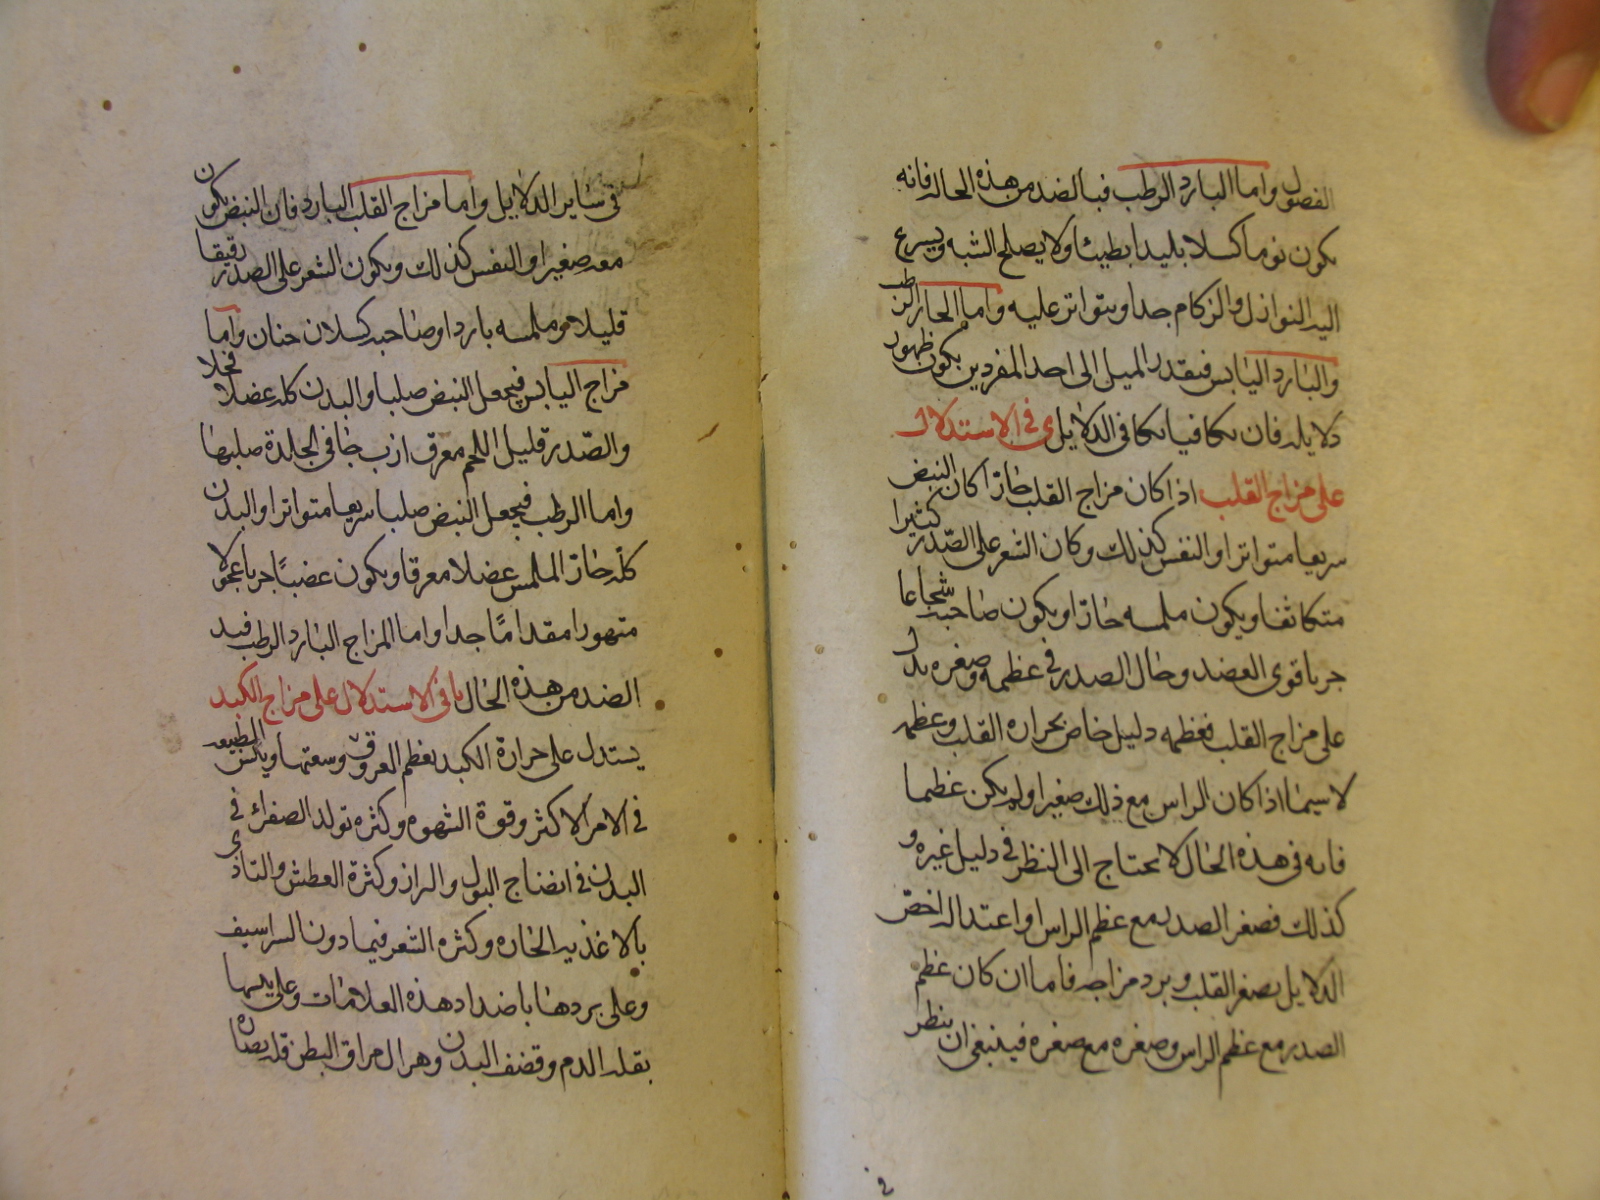 الفصول واما البارد الرطب فبالضد من هذه الحاله فانه
يكون نوما كسلا بليدا بطيئا ولا يصلح الشبه ويسرع
اليه النوازل والزكام جدا ويتواتر عليه واما الحار الرطب
والبارد اليابس فبقدر الميل الى احد المفردين يكون ظهور
دلايله فان تكافيا تكافى الدلايل في الاستدلال
على مزاج القلب اذا كان مزاج القلب حارا كان النبض
سريعا متواترا والنفس كذلك وكان الشعر على الصدر كثيرا
متكاثفا ويكون ملمسه حارا ويكون صاحبه شجاعا
جريا قوى العضد وحال الصدر في عظمه وصغره يدل
على مزاج القلب فعظمه دليل خاص بحراره القلب وعظمه
لا سيما اذا كان الراس مع ذلك صغيرا ولم يكن عظيما
فانه في هذه الحال لا يحتاج الى النظر في دليل غيره و
كذلك فصغر الصدر مع عظم الراس او اعتداله اخص
الدلايل بصغر القلب وبرد مزاجه فاما ان كان عظم
الصدر مع عظم الراس وصغره مع صغره فينبغى ان ينظر
في ساير الدلايل واما مزاج القلب البارد فان النبض يكون
معه صغيرا والنفس كذلك ويكون الشعر على الصدر رقيقا
قليلا وملمسه باردا وصاحبه كسلان جبان واما
مزاج اليابس فيجعل النبض صلبا والبدن كله عضلا قحلا
والصدر قليل اللحم معرق ازب جافى الجلدة صلبها
واما الرطب فيجعل النبض صلبا سريعا متواترا والبدن
كله حار الملمس عضلا معرقا ويكون غضبا جريا عجولا
متهورا مقداما جدا واما المزاج البارد الرطب فبـ
الضد من هذه الحال با في الاستدلال على مزاج الكبد
يستدل على حرارة الكبد بعظم العروق وسعتها ويابس الطبيعه
في الامر الاكثر وقوة الشهوه وكثره تولد الصفراء في
البدن في انضاج البول والبراز وكثرة العطش والتاذى
بالاغذيه الحاره وكثره الشعر فيما دون الشراسيف
وعلى بردها باضداد هذه العلامات وعلى يبسها
بقله الدم وقضف البدن وهزال مراق البطن قله